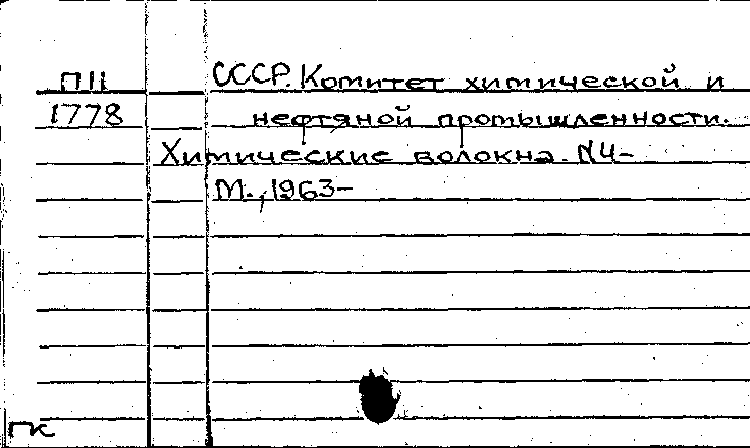 П11 СССР. Комитет химической и
1778 нефтяной промышленности.
Химические волокна. N4-
М., 1963-
ГК